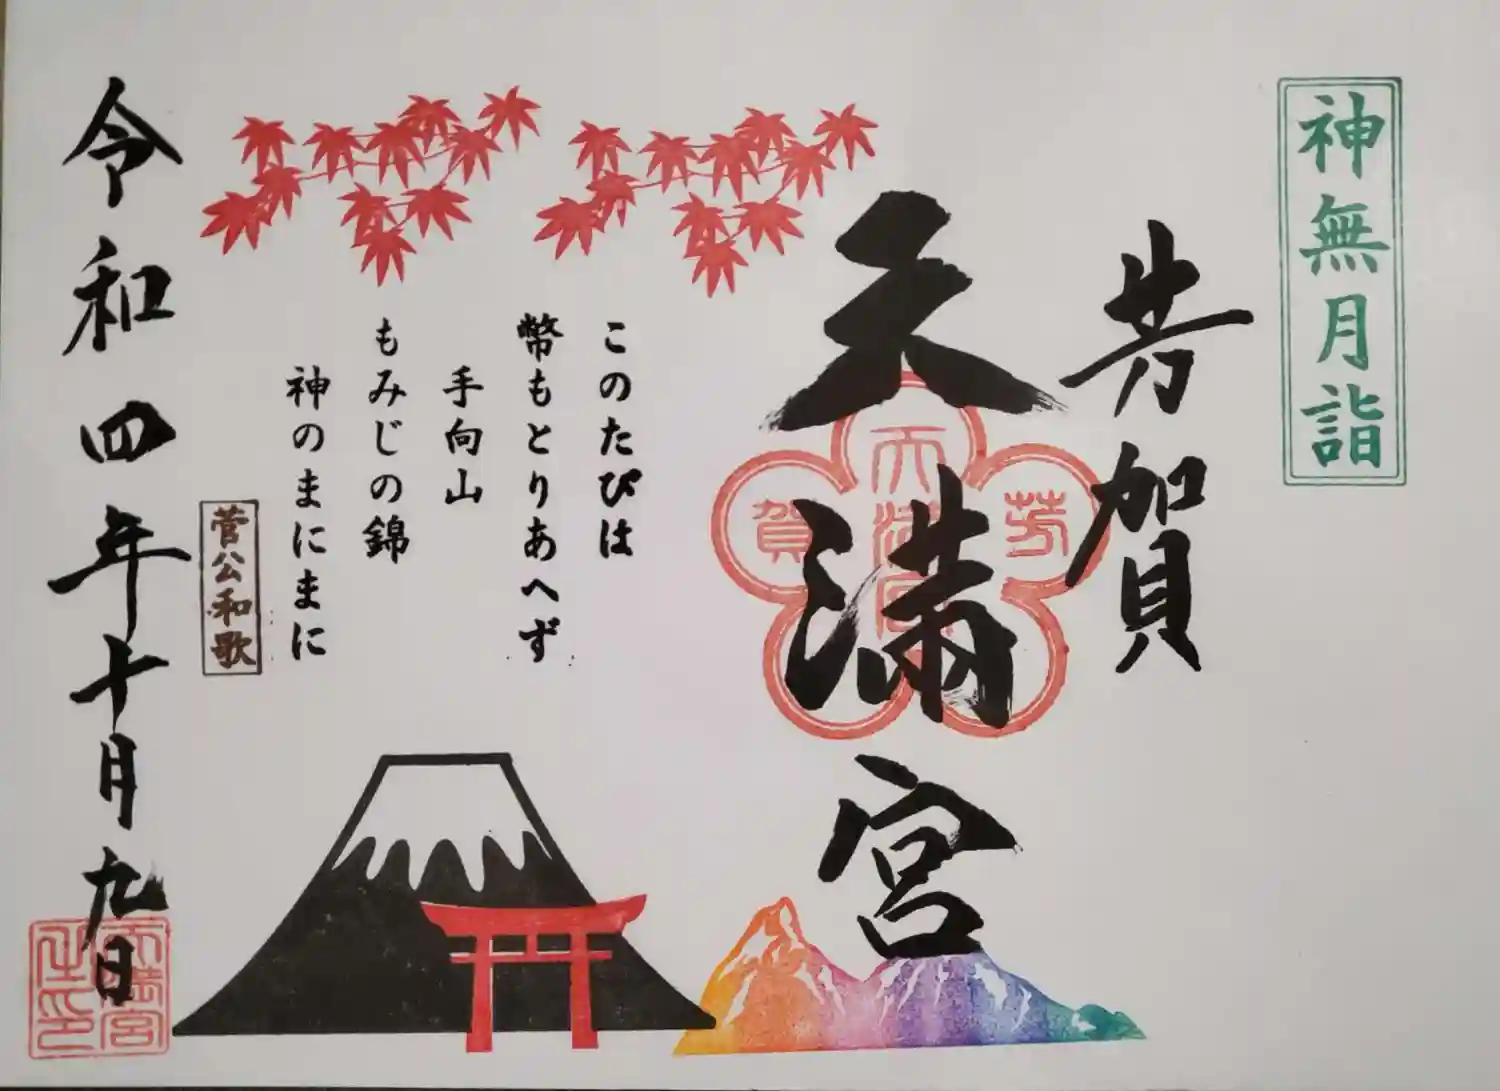 神無月詣
芳賀
天満宮
芳賀
天満宮
このたびは
幣もとりあへず
手向山
もみじの錦
神のまにまに
菅公和歌
令和四年十月九日
天満宮
之印